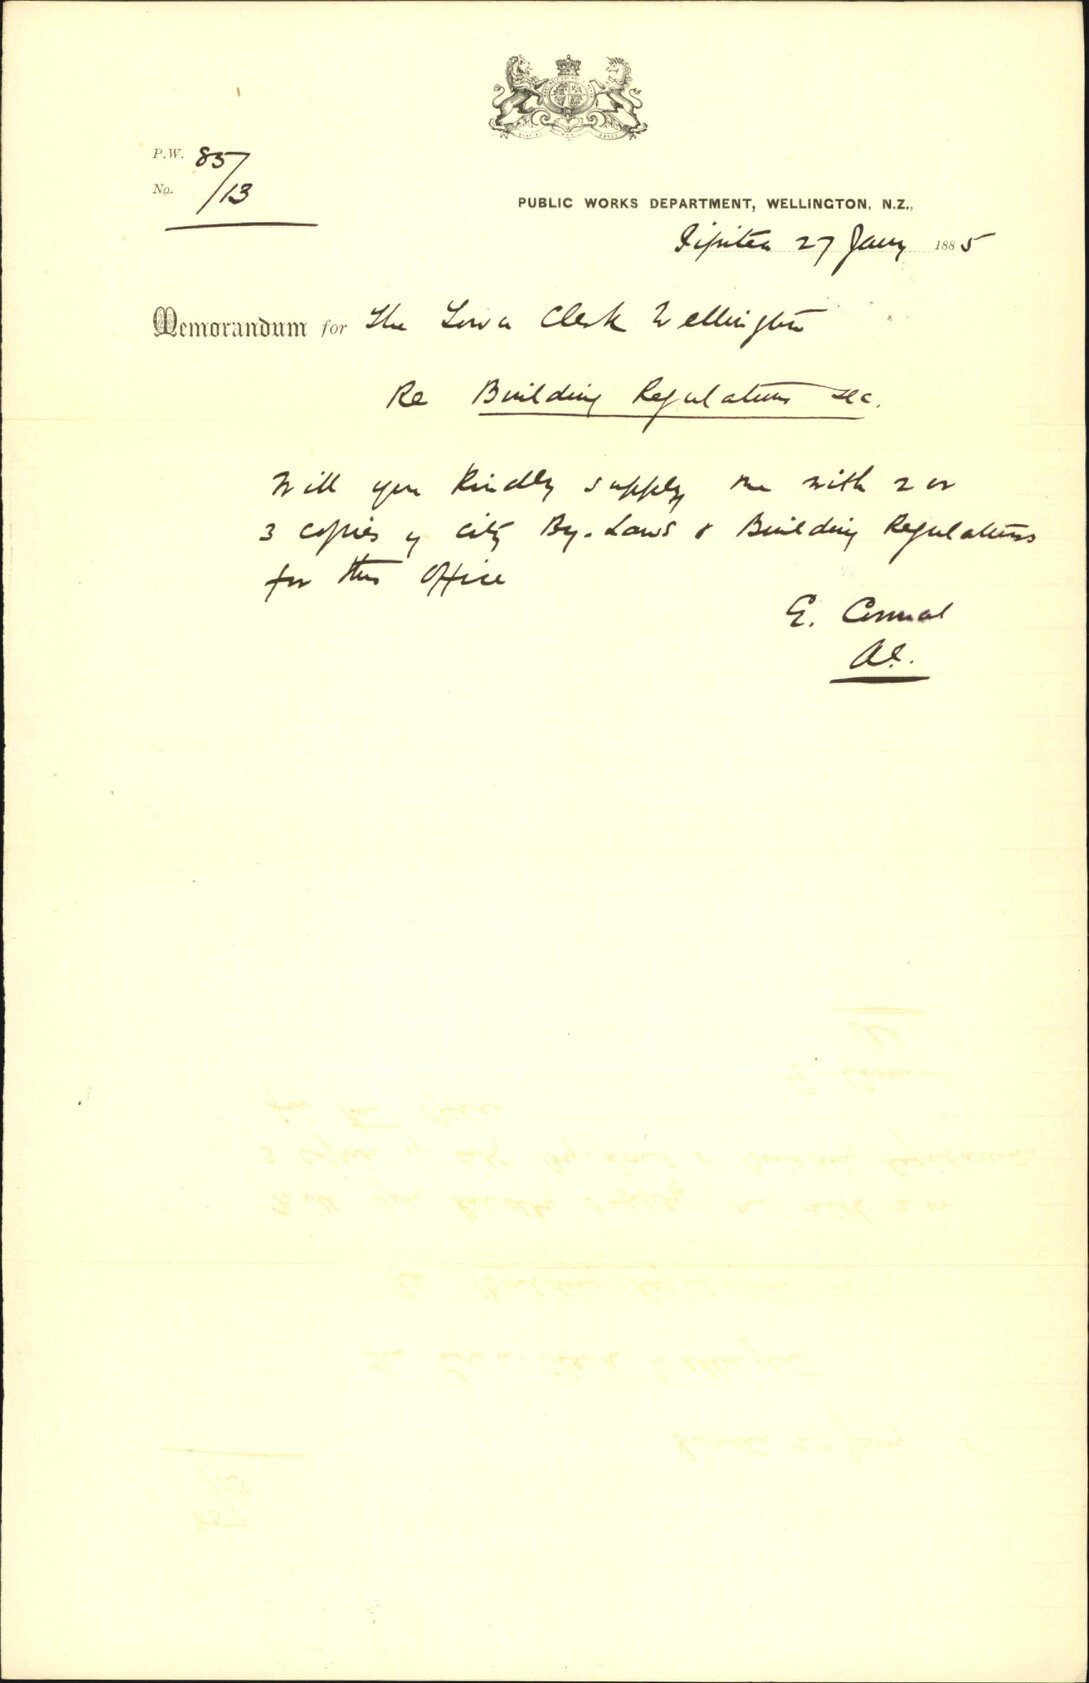 P.W. 85/
No. /13
PUBLIC WORKS DEPARTMENT, WELLINGTON, N.Z.,
Pipitea 27 Jany 1885
Memorandum for The Town Clerk Wellington
Re Building Regulations &c.
Will you kindly supply me with 2 or
3 copies of City By-Laws & Building Regulations
for this Office
E.